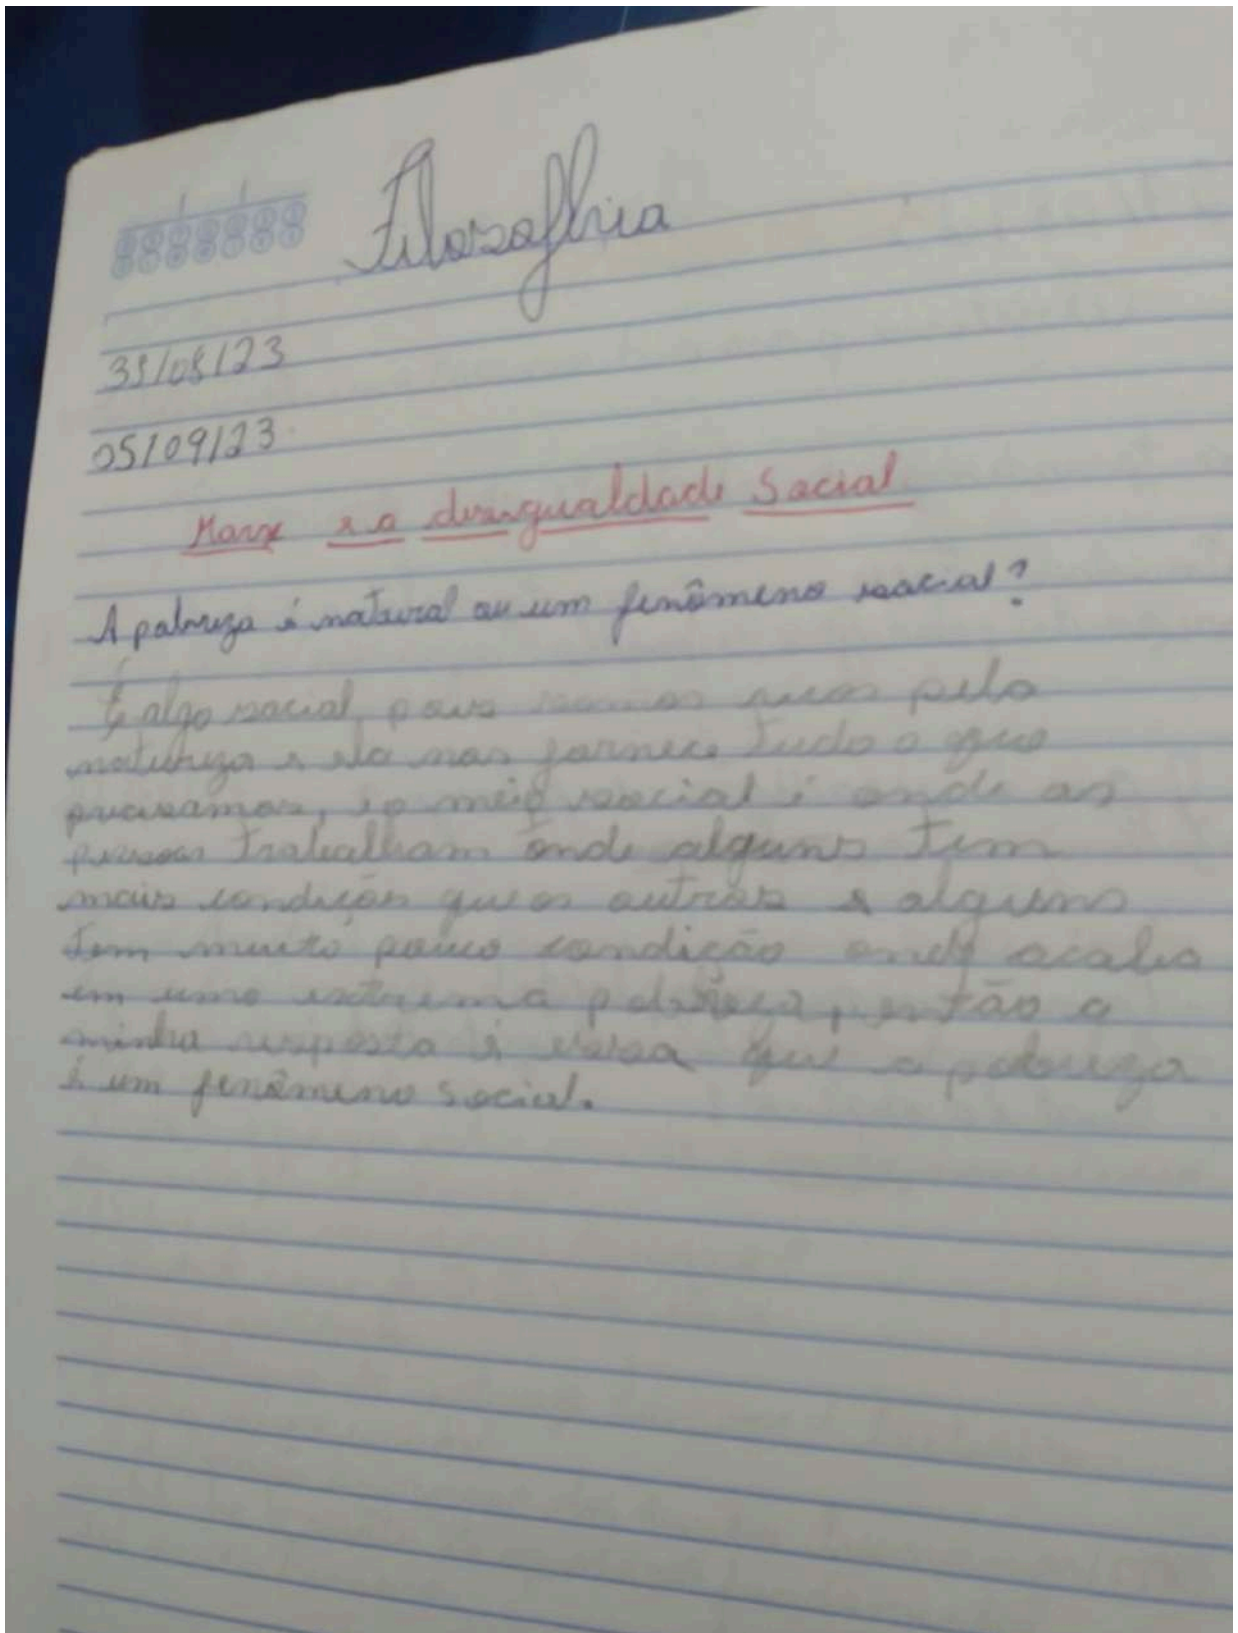 Filosofhia
31/08/23
05/09/23
Marx e a desigualdade Social
A pobreza é natural ou um fenômeno social?
É algo social, pois somos ricos pela
natureza e ela nos fornece tudo o que
precisamos, e o meio social é onde as
pessoas trabalham onde alguns tem
mais condições que os outros e alguns
tem muito pouco condição onde acaba
em uma extrema pobreza, então a
minha resposta é essa que a pobreza
é um fenômeno social.